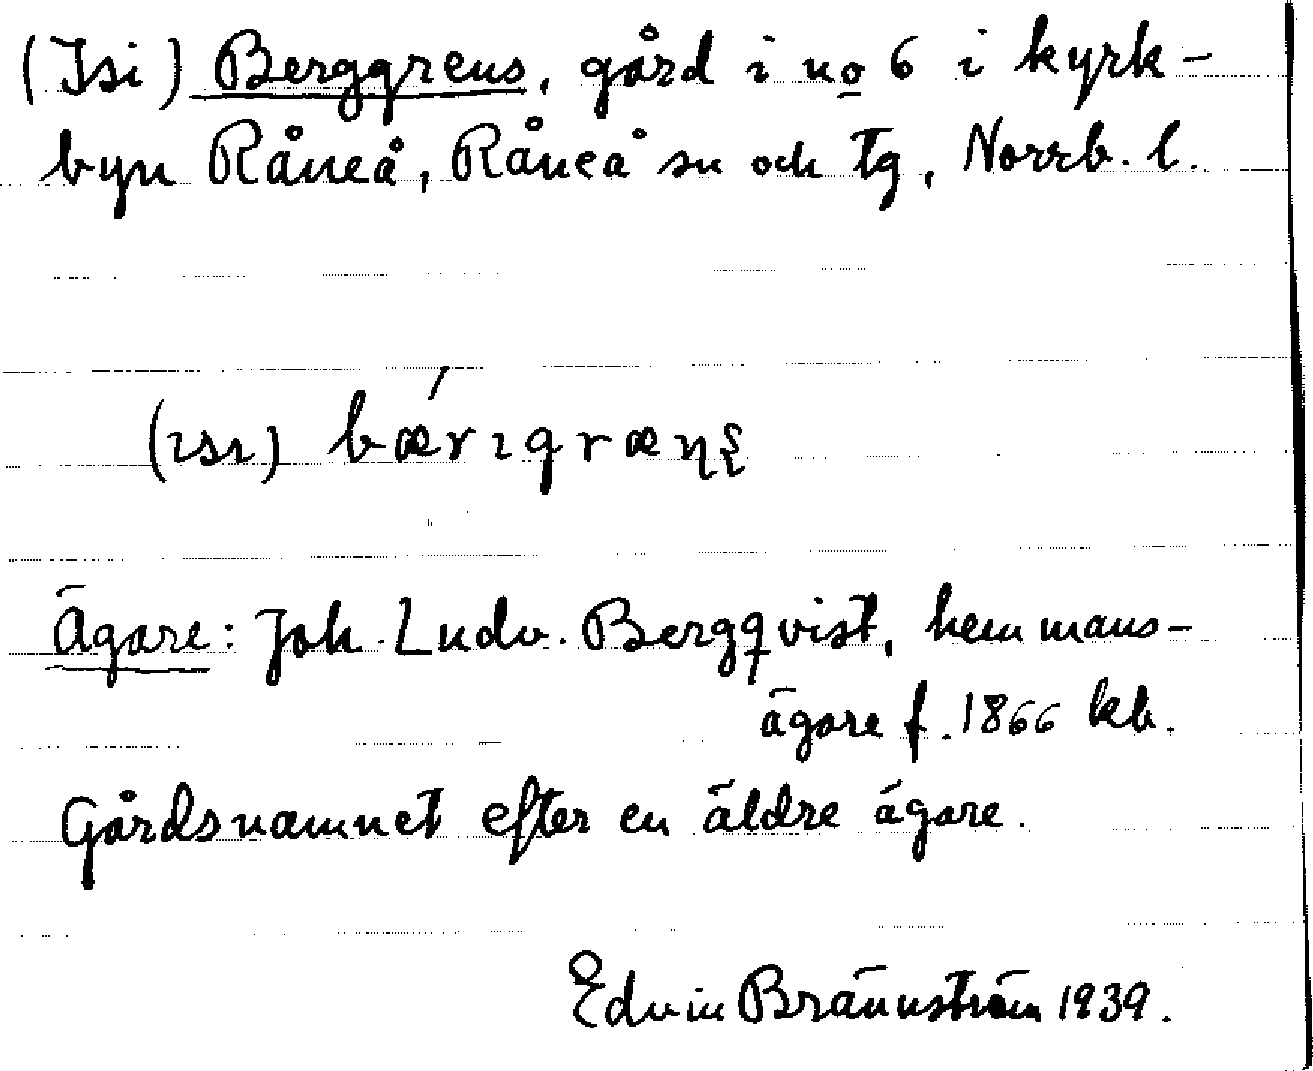 (Isi) Berggrens, gård i no 6 i kyrk-
byn Råneå, Råneå sn och tg, Norrb. l.
(ısı) bǽrıgræṇș
Ägare: Joh. Ludv. Bergqvist, hemmans-
ägare f. 1866 kb.
Gårdsnamnet efter en äldre ägare.
Edvin Brännström 1939.